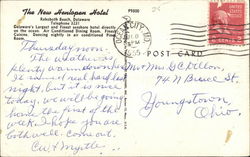 The New Henlopen Hotel
Rehoboth Beach, Delaware
Telephone 3331
Delaware's Largest and Finest seashore hotel directly
on the ocean. Air Conditioned Dining Room. Finest
Cuisine. Dancing nightly in air conditioned
POST CARD
OCEAN CITY, MD.
Thursday noon.
The weather is
plenty warm down here
rained real hard last
night, but it is nice
today, we will be going
home the first of the
week. Hope you are
both well. Come out.
Cal & Myrtle.
Mr. & Mrs. H. C. Dillon,
74 N. Bruce St.
Youngstown,
Ohio.